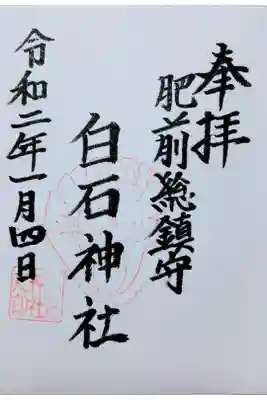 奉拝
肥前総鎮守
白石神社
令和二年一月四日